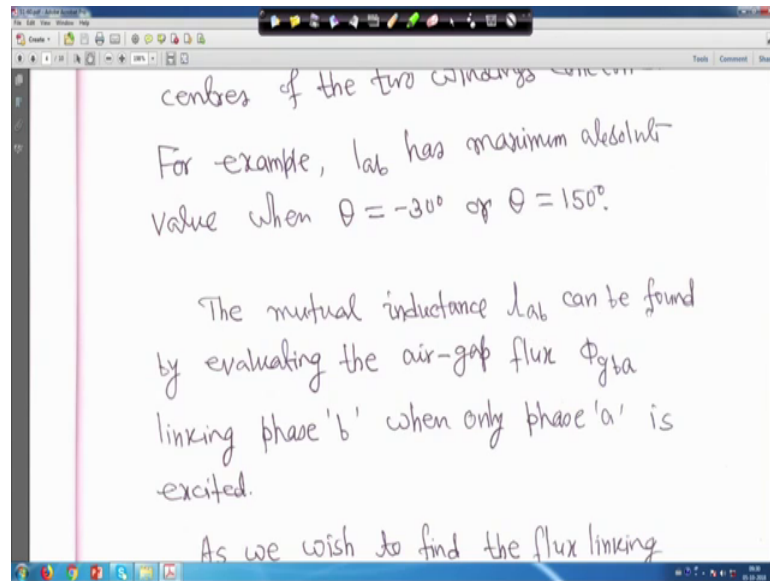 Create
Tools Comment
centres of the two windings
For example, lab has maximum absolute
value when θ = -30° or θ = 150°.
The mutual inductance lab can be found
by evaluating the air-gap flux Φgba
linking phase 'b' when only phase 'a' is
excited.
As we wish to find the flux linking